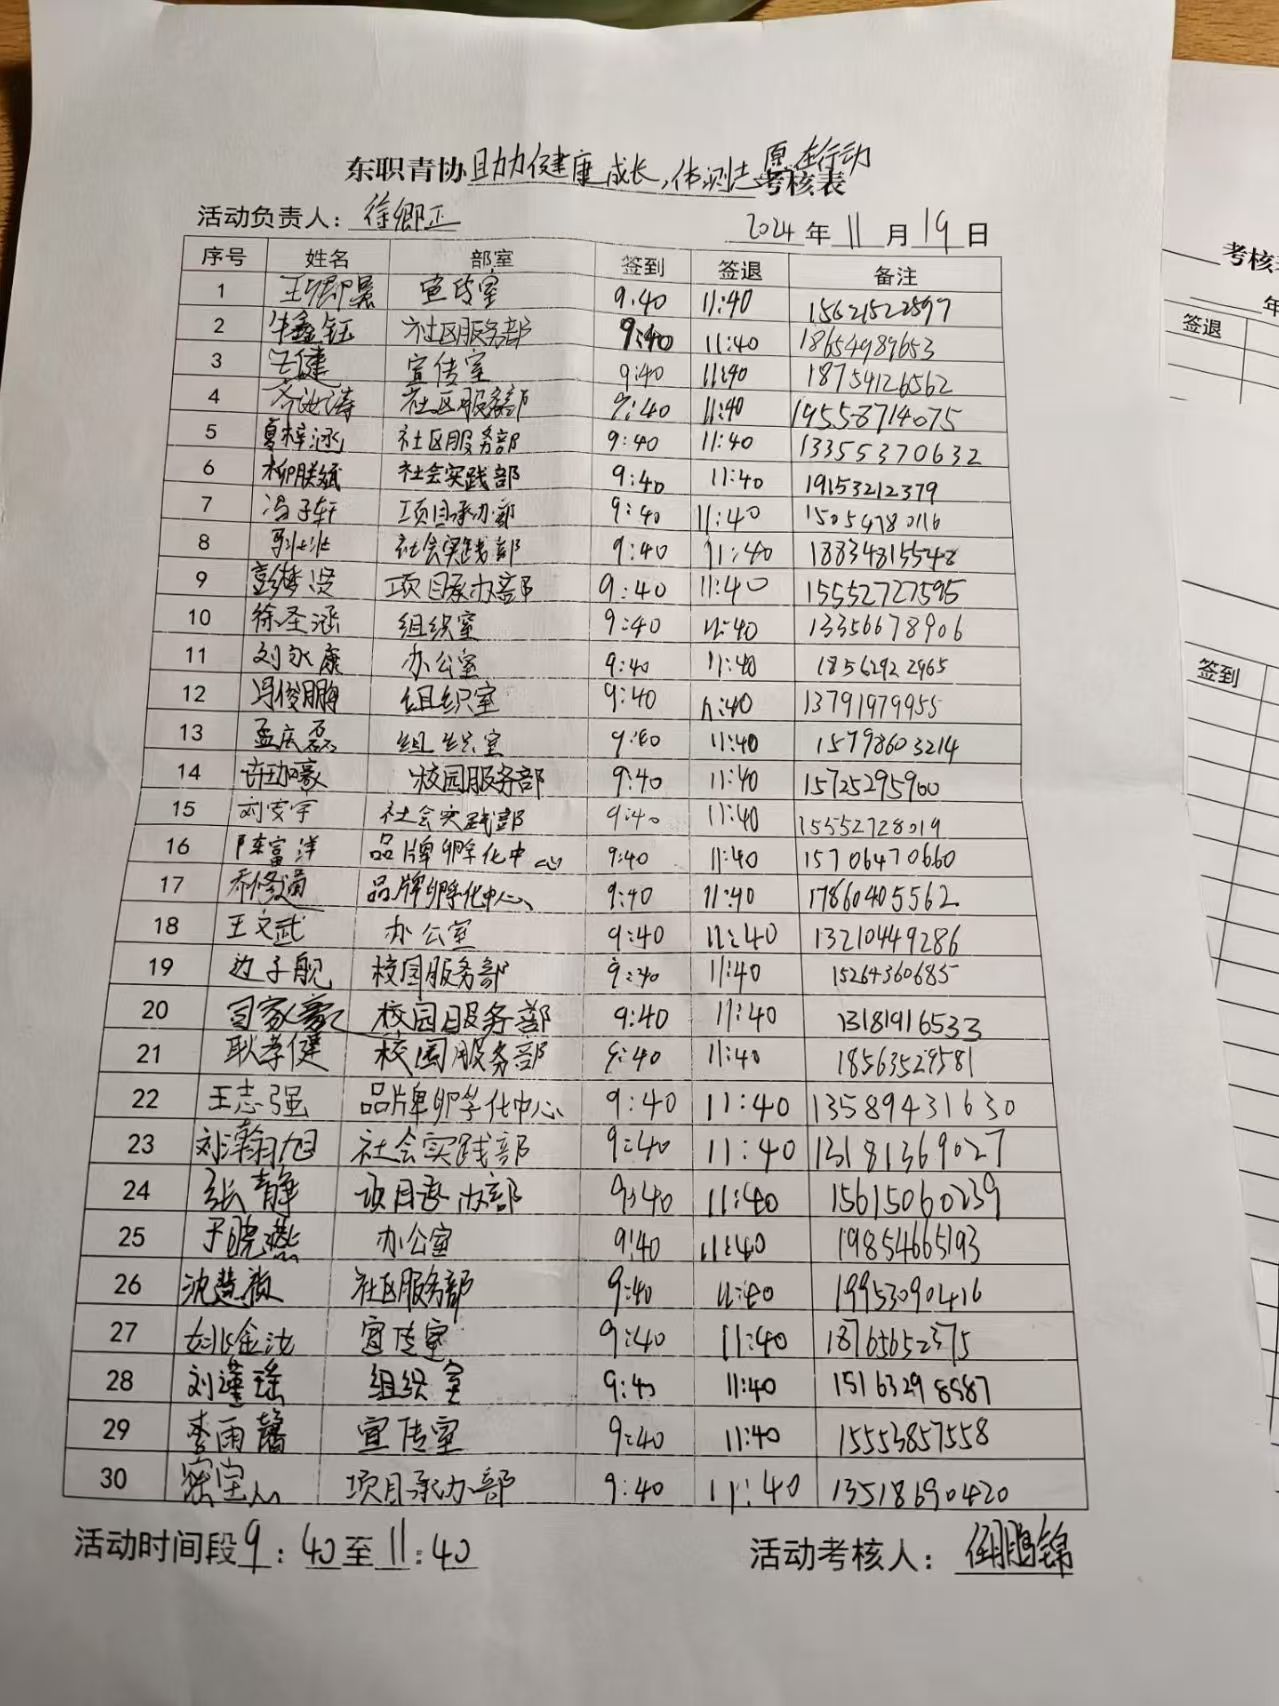 东职青协助力健康成长,体测志愿在行动考核表
活动负责人: 徐卿正 2024年11月19日
序号 姓名 部室 签到 签退 备注
1 宣传室 9:40 11:40 15621522597
2 牛鑫钰 社区服务部 9:40 11:40 18654989653
3 王健 宣传室 9:40 11:40 18754126562
4 齐汝涛 社区服务部 9:40 11:40 19558714075
5 夏梓涵 社区服务部 9:40 11:40 13355370632
6 柳朕斌 社会实践部 9:40 11:40 19153212379
7 冯子轩 项目承办部 9:40 11:40 15054780116
8 社会实践部 9:40 11:40 18834815548
9 彭梦贤 项目承办部 9:40 11:40 15552727595
10 徐圣涵 组织室 9:40 11:40 13356678906
11 刘永康 办公室 9:40 11:40 18562922965
12 冯俊鹏 组织室 9:40 11:40 13791979955
13 孟庆磊 组织室 9:40 11:40 15798603214
14 许珈豪 校园服务部 9:40 11:40 15725295960
15 刘安宇 社会实践部 9:40 11:40 15552728019
16 陈富洋 品牌孵化中心 9:40 11:40 15706470660
17 乔修通 品牌孵化中心 9:40 11:40 17860405562
18 王文武 办公室 9:40 11:40 13210449286
19 边子舰 校园服务部 9:40 11:40 15264360685
20 校园服务部 9:40 11:40 13181916533
21 耿孝健 校园服务部 9:40 11:40 18563529581
22 王志强 品牌孵化中心 9:40 11:40 13589431630
23 刘瀚旭 社会实践部 9:40 11:40 13181369027
24 张静 项目承办部 9:40 11:40 15615060239
25 于晓燕 办公室 9:40 11:40 19854665193
26 沈慧颖 社区服务部 9:40 11:40 19953090416
27 姚金汝 宣传室 9:40 11:40 18765652375
28 刘瑾瑶 组织室 9:40 11:40 15163298587
29 李雨馨 宣传室 9:40 11:40 15553857558
30 项目承办部 9:40 11:40 13518690420
活动时间段9:40至11:40 活动考核人:
考核
年
签退
签到